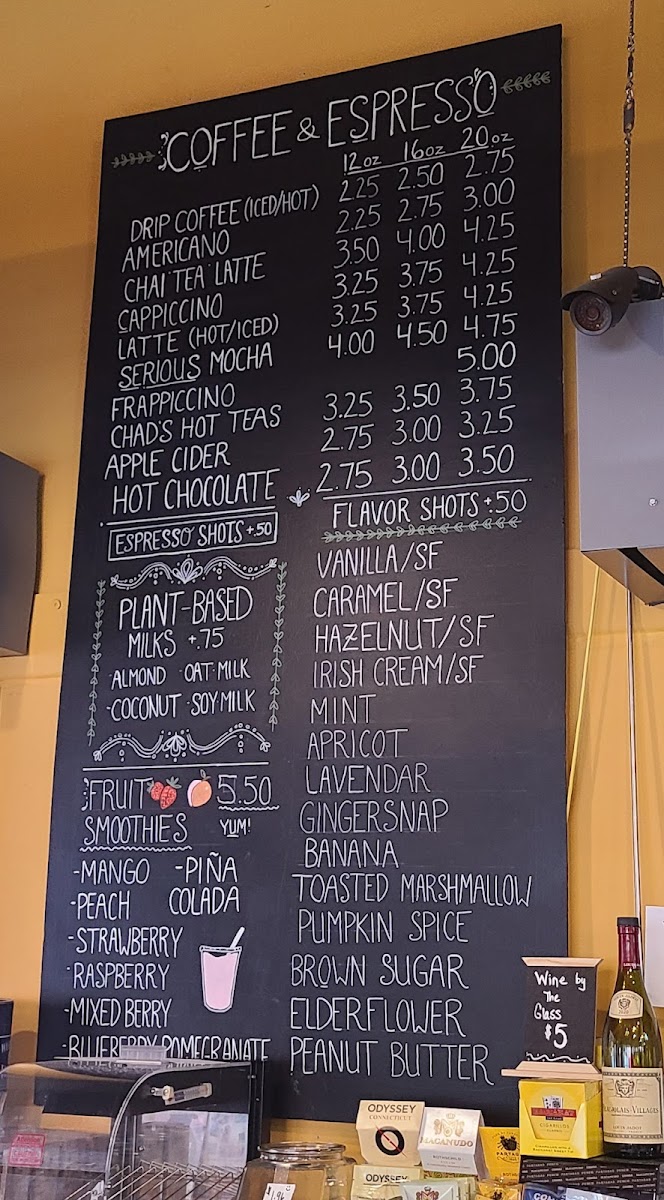 COFFEE & ESPRESSO
12oz 16oz 20oz
DRIP COFFEE (ICED/HOT) 2.25 2.50 2.75
AMERICANO 2.25 2.75 3.00
CHAI TEA LATTE 3.50 4.00 4.25
CAPPICCINO 3.25 3.75 4.25
LATTE (HOT/ICED) 3.25 3.75 4.25
SERIOUS MOCHA 4.00 4.50 4.75
FRAPPICCINO 5.00
CHAD'S HOT TEAS 3.25 3.50 3.75
APPLE CIDER 2.75 3.00 3.25
HOT CHOCOLATE 2.75 3.00 3.50
ESPRESSO SHOTS +.50
PLANT-BASED
MILKS +.75
·ALMOND ·OAT·MILK
·COCONUT ·SOY·MILK
FRUIT 5.50
SMOOTHIES YUM!
-MANGO -PIÑA
-PEACH COLADA
-STRAWBERRY
-RASPBERRY
-MIXED BERRY
-BLUEBERRY POMEGRANATE
FLAVOR SHOTS +.50
VANILLA/SF
CARAMEL/SF
HAZELNUT/SF
IRISH CREAM/SF
MINT
APRICOT
LAVENDAR
GINGERSNAP
BANANA
TOASTED MARSHMALLOW
PUMPKIN SPICE
BROWN SUGAR
ELDERFLOWER
PEANUT BUTTER
Wine by
The
Glass
$5
ODYSSEY
CONNECTICUT
MACANUDO
ODYSSEY